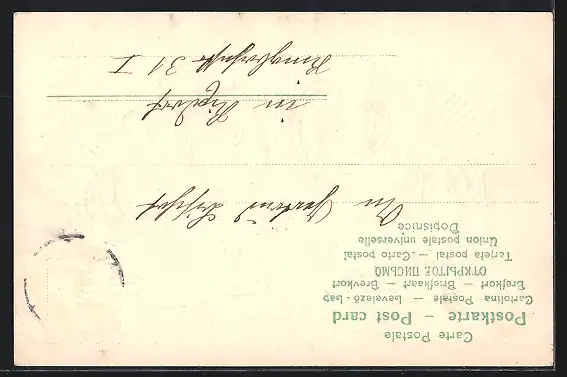 Carte Postale
Postkarte – Post card
Cartolina Postale – Levelező-Lap
Brefkort – Briefkaart – Brevkort
ОТКРЫТОЕ ПИСЬМО.
Tarjeta postal – Carto postal
Union postale universelle
Dopisnice
An
in Rixdorf
31 I